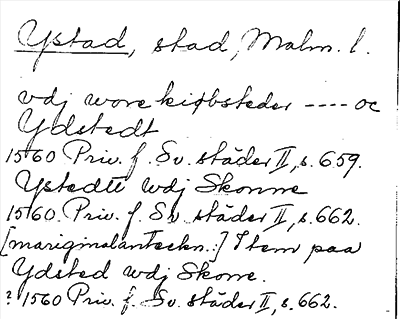 Ystad, stad, Malm. l.
vdj wore kiøbsteder ---- oc
Ydstedt
1560 Priv. f. Sv. städer II, s. 659.
Ystedtt wdj Skonne
1560. Priv. f. Sv. städer II, s. 662.
[mariginalanteckn.:] Item paa
Ydsted wdj Skone.
? 1560 Priv. f. Sv. städer II, s. 662.